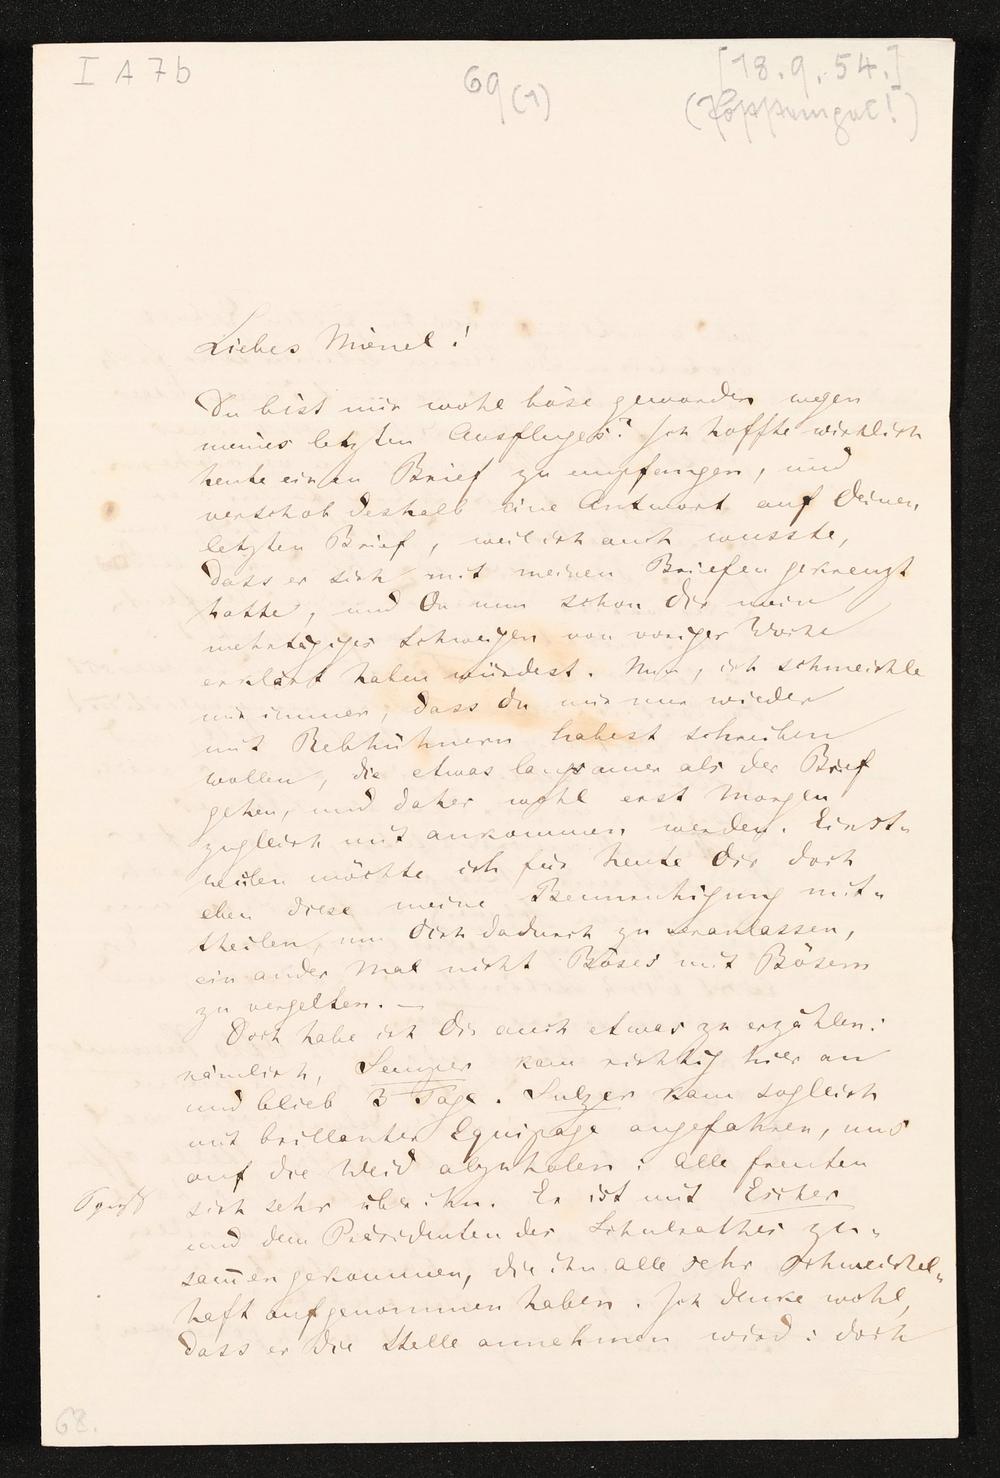 I A 7b
69 (1)
[18.9.54.]
Liebes Minel!
Du bist mir wohl böse geworden wegen
meines letzten Ausfluges? Ich hoffte wirklich
heute einen Brief zu empfangen, und
verschob deshalb eine Antwort auf Deinen
letzten Brief, weil ich auch wusste,
dass er sich mit meinen Briefen gekreuzt
hatte, und Du nun schon Dir mein
mehrtägiges Schweigen von voriger Woche
erklärt haben würdest. Nun, ich schmeichle
mir immer, dass Du mir nur wieder
mit Rebhühnern habest schreiben
wollen, die etwas langsamer als der Brief
gehen, und daher wohl erst Morgen
zugleich mit ankommen werden. Einst-
weilen möchte ich für heute Dir doch
eben diese meine Beunruhigung mit-
theilen, um Dich dadurch zu veranlassen,
ein ander Mal nicht Böses mit Bösem
zu vergelten. —
Doch habe ich Dir auch etwas zu erzählen:
nämlich, Semper kam richtig hier an
und blieb 3 Tage. Sulzer kam sogleich
mit brillanter Equipage angefahren, uns
auf die Weid abzuholen: Alle freuten
sich sehr über ihn. Er ist mit Escher
und dem Präsidenten des Schulrathes zu-
sam̄engekommen, die ihn alle sehr schmeichel-
haft aufgenommen haben. Ich denke wohl,
dass er die Stelle annehmen wird: doch
68.